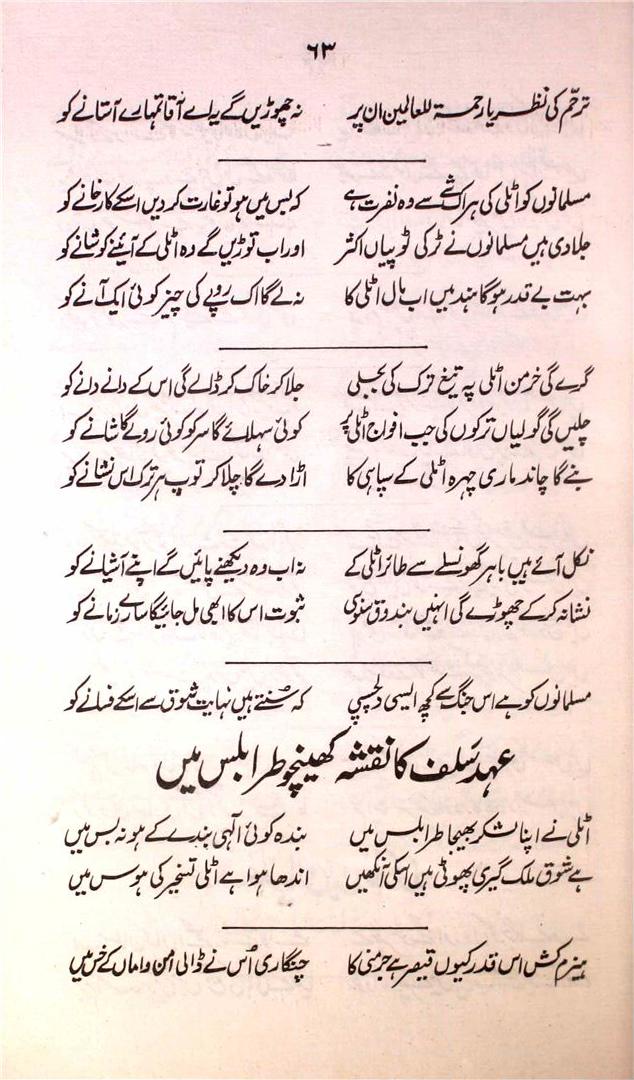 ۶۳
ترحّم کی نظر یا رحمة للعالمین ان پر نہ چھوڑیں گے یہ اے آقا تمہارے آستانے کو
مسلمانوں کو اٹلی کی ہر اک شے سے وہ نفرت ہے کہ بس میں ہو تو غارت کر دیں اسکے کارخانے کو
جلادی ہیں مسلمانوں نے ٹرکی ٹوپیاں اکثر اور اب توڑیں گے وہ اٹلی کے آئینے کو شانے کو
بہت بے قدر ہوگا ہند میں اب مال اٹلی کا نہ لے گا اک روپے کی چیز کوئی ایک آنے کو
گرے گی خرمن اٹلی پہ تیغ ترک کی بجلی جلا کر خاک کر ڈالے گی اس کے دانے دانے کو
چلیں گی گولیاں ترکوں کی جب افواج اٹلی پر کوئی سہلائے گا سر کو کوئی روئے گا شانے کو
بنے گا چاند ماری چہرہ اٹلی کے سپاہی کا اڑا دے گا چلا کر توپ ہر ترک اس نشانے کو
نکل آئے ہیں باہر گھونسلے سے طائر اٹلی کے نہ اب وہ دیکھنے پائیں گے اپنے آشیانے کو
نشانہ کر کے چھوڑے گی انہیں بندوق سنوسی ثبوت اس کا ابھی مل جائیگا سارے زمانے کو
مسلمانوں کو ہے اس جنگ سے کچھ ایسی دلچسپی کہ سُنتے ہیں نہایت شوق سے اسکے فسانے کو
عہدِ سَلف کا نقشہ کھینچو طرابلس میں
اٹلی نے اپنا لشکر بھیجا طرابلس میں بندہ کوئی الٰہی بندے کے ہو نہ بس میں
ہے شوق ملک گیری پھوٹی ہیں اسکی آنکھیں اندھا ہوا ہے اٹلی تسخیر کی ہوس میں
ہیزم کش اس قدر کیوں قیصر ہے جرمنی کا چنگاری اُس نے ڈالی امن و اماں کے خس میں